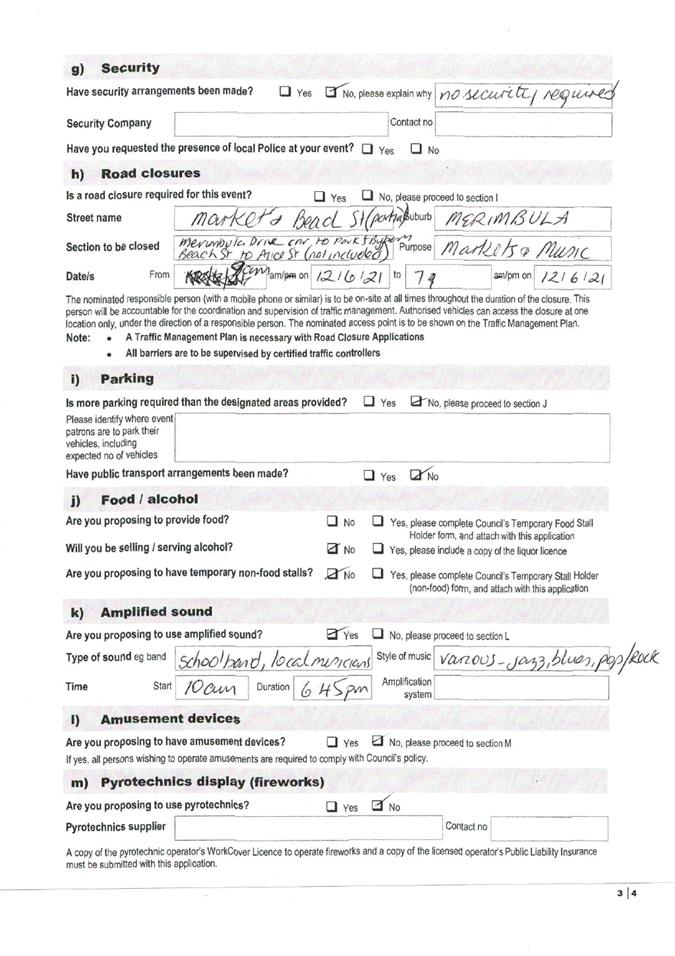 g) Security
Have security arrangements been made? ☐ Yes ☑ No, please explain why no security required
Security Company Contact no
Have you requested the presence of local Police at your event? ☐ Yes ☐ No
h) Road closures
Is a road closure required for this event? ☐ Yes ☐ No, please proceed to section I
Street name Market & Beach St (partial) Suburb MERIMBULA
Section to be closed Merimbula Drive cnr to Park &
Beach St to Alice St (not included) Purpose Markets & Music
Date/s From 9am am/pm on 12/6/21 to 7 am/pm on 12/6/21
The nominated responsible person (with a mobile phone or similar) is to be on-site at all times throughout the duration of the closure. This
person will be accountable for the coordination and supervision of traffic management. Authorised vehicles can access the closure at one
location only, under the direction of a responsible person. The nominated access point is to be shown on the Traffic Management Plan.
Note: • A Traffic Management Plan is necessary with Road Closure Applications
• All barriers are to be supervised by certified traffic controllers
i) Parking
Is more parking required than the designated areas provided? ☐ Yes ☑ No, please proceed to section J
Please identify where event
patrons are to park their
vehicles, including
expected no of vehicles
Have public transport arrangements been made? ☐ Yes ☑ No
j) Food / alcohol
Are you proposing to provide food? ☐ No ☐ Yes, please complete Council's Temporary Food Stall
Holder form, and attach with this application
Will you be selling / serving alcohol? ☑ No ☐ Yes, please include a copy of the liquor licence
Are you proposing to have temporary non-food stalls? ☑ No ☐ Yes, please complete Council's Temporary Stall Holder
(non-food) form, and attach with this application
k) Amplified sound
Are you proposing to use amplified sound? ☑ Yes ☐ No, please proceed to section L
Type of sound eg band school band, local musicians Style of music various - jazz, blues, pop/rock
Time Start 10am Duration 6 45pm Amplification
system
l) Amusement devices
Are you proposing to have amusement devices? ☐ Yes ☑ No, please proceed to section M
If yes, all persons wishing to operate amusements are required to comply with Council's policy.
m) Pyrotechnics display (fireworks)
Are you proposing to use pyrotechnics? ☐ Yes ☑ No
Pyrotechnics supplier Contact no
A copy of the pyrotechnic operator's WorkCover Licence to operate fireworks and a copy of the licensed operator's Public Liability Insurance
must be submitted with this application.
3 | 4